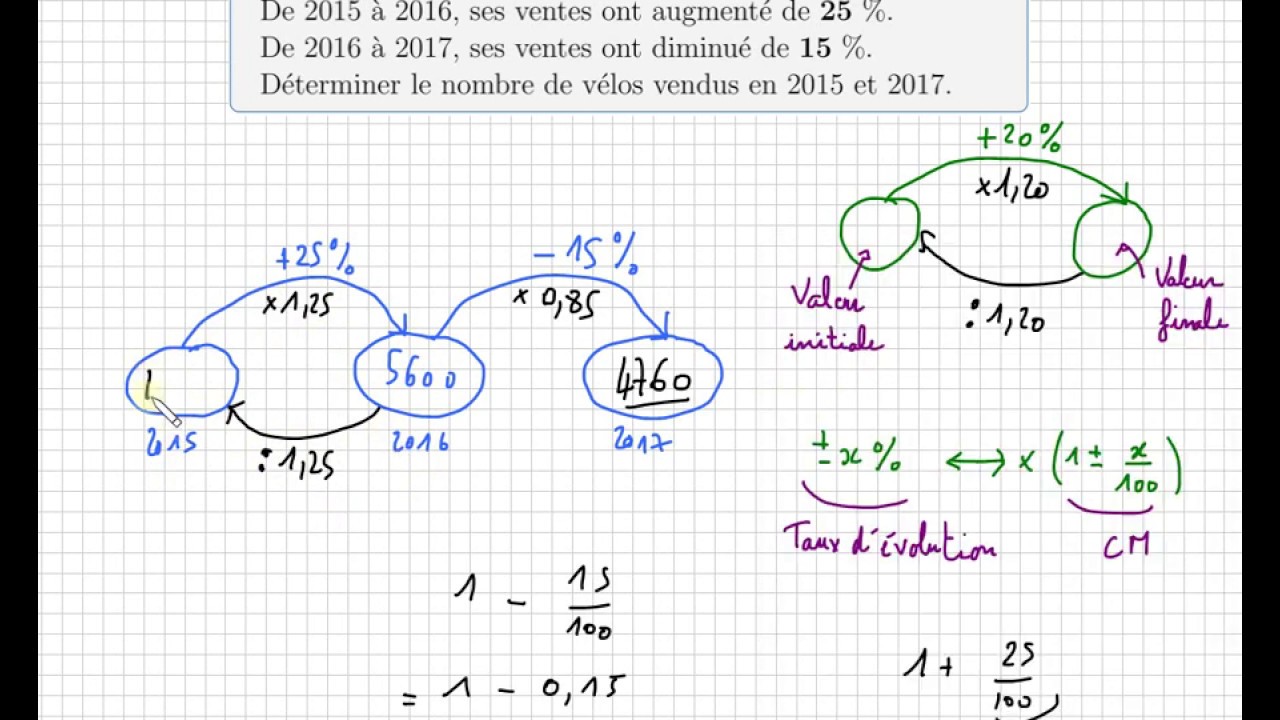 De 2015 à 2016, ses ventes ont augmenté de 25 %.
De 2016 à 2017, ses ventes ont diminué de 15 %.
Déterminer le nombre de vélos vendus en 2015 et 2017.
+20%
×1,20
Valeur initiale
: 1,20
Valeur finale
+25%
×1,25
- 15%
× 0,85
5600
4760
2015
2016
2017
: 1,25
± x % ↔ × (1 ± x/100)
Taux d'évolution
CM
1 - 15/100
= 1 - 0,15
1 + 25/100